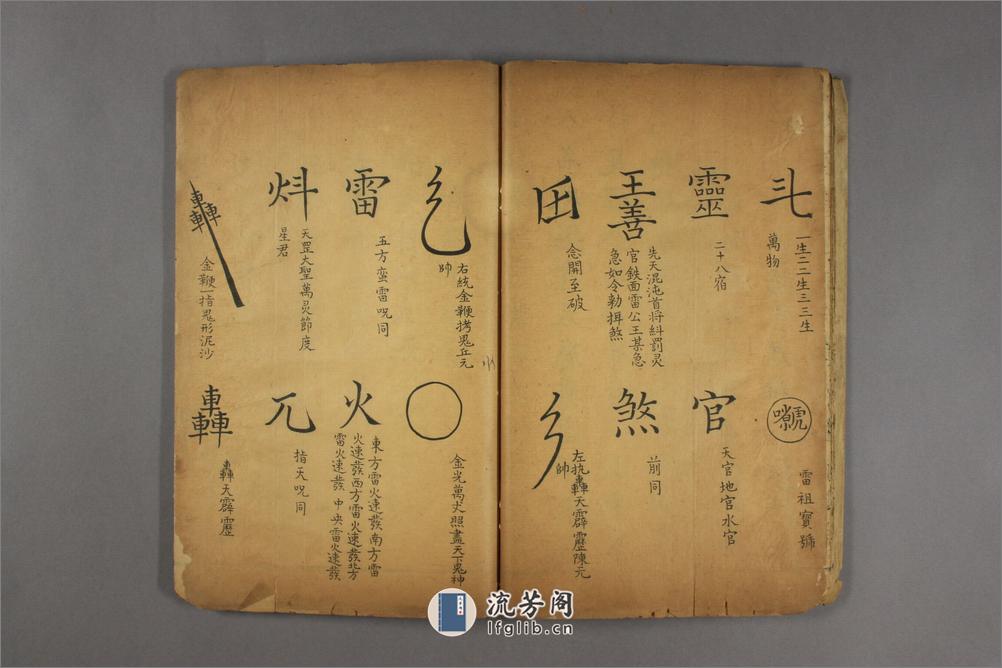 一生二二生三三生
萬物
雷祖寶號
靈
二十八宿
官
天官地官水官
王善
先天混沌首将糾罰灵
官鉄面雷公王某急
急如令勅揖煞
煞
前同
念開至破
左执轟天霹靂陳元
帥
右統金鞭拷鬼丘元
帥
金光萬丈照盡天下鬼神
雷
五方蛮雷呪同
火
東方雷火速發南方雷
火速發西方雷火速發北方
雷火速發 中央雷火速發
天罡大聖萬灵節度
星君
兀
指天呪同
轟
金鞭一指鬼形泥沙
轟
轟天霹靂
流芳阁
lfglib.cn